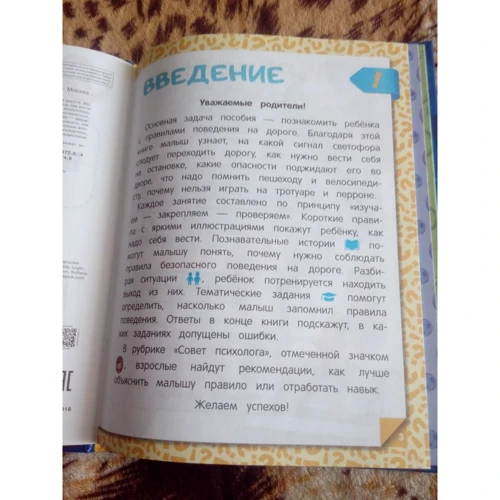 ВВЕДЕНИЕ
!
Уважаемые родители!
Основная задача пособия — познакомить ребёнка
с правилами поведения на дороге. Благодаря этой
книге малыш узнает, на какой сигнал светофора
следует переходить дорогу, как нужно вести себя
на остановке, какие опасности поджидают его во
дворе, что надо помнить пешеходу и велосипеди-
сту, почему нельзя играть на тротуаре и перроне.
Каждое занятие составлено по принципу «изуча-
ем — закрепляем — проверяем». Короткие прави-
ла с яркими иллюстрациями покажут ребёнку, как
надо себя вести. Познавательные истории по-
могут малышу понять, почему нужно соблюдать
правила безопасного поведения на дороге. Разби-
рая ситуации , ребёнок потренируется находить
выход из них. Тематические задания помогут
определить, насколько малыш запомнил правила
поведения. Ответы в конце книги подскажут, в ка-
ких заданиях допущены ошибки.
В рубрике «Совет психолога», отмеченной значком
, взрослые найдут рекомендации, как лучше
объяснить малышу правило или отработать навык.
Желаем успехов!
3